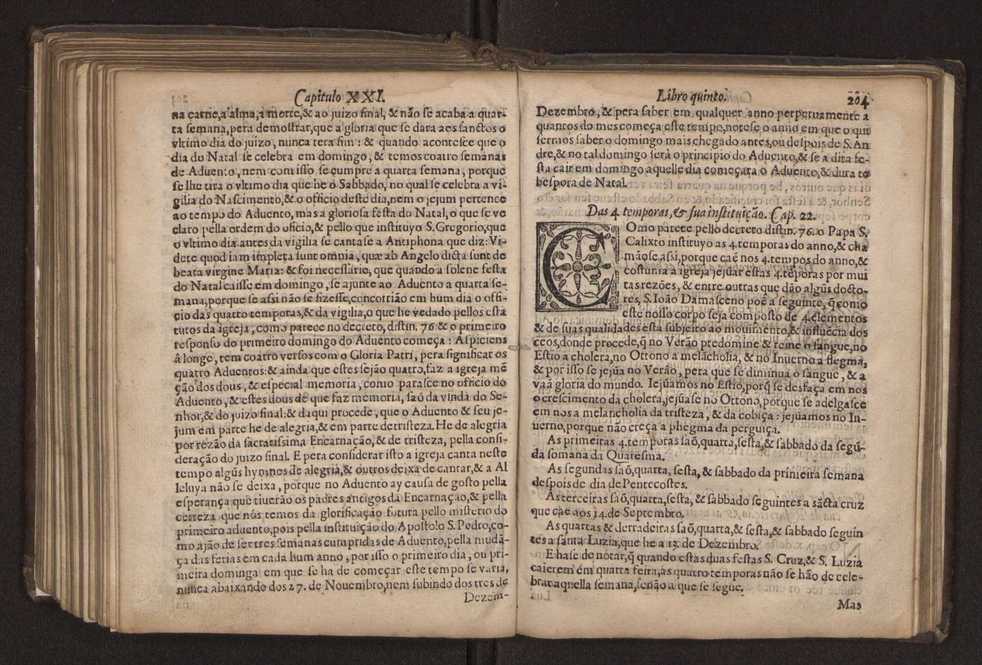 Capitulo XXI.
na carne, a alma, a morte, & ao juizo final, & não se acaba a quar-
ta semana, pera demostrar, que a gloria que se dara aes sanctos o
vltimo dia do juizo, nunca tera fim: & quando acontesce que o
dia do Natal se celebra em domingo, & temos coatro semanas
de Aduento, nem com isso se cumpre a quarta semana, porque
se lhe tira o vltimo dia que he o Sabbado, no qual se celebra a vi-
gilia do Nascimento, & o officio deste dia, nem o jejum pertence
ao tempo do Aduento, mas a gloriosa festa do Natal, o que se ve
claro pella ordem do oficio, & pello que instituyo S. Gregorio, que
o vltimo dia antes da vigilia se cantase a Antiphona que diz: Vi-
dete quod iam impleta sunt omnia, quæ ab Angelo dicta sunt de
beata virgine Maria: & foi necessario, que quando a solene festa
do Natal caisse em domingo, se ajunte ao Aduento a quarta se-
mana, porque se assi não se fizesse, concorrião em hum dia o offi-
cio das quatro temporas, & da vigilia, o que he vedado pellos esta
tutos da igreja, como parece no decreto, distin. 76 & o primeiro
responso do primeiro domingo do Aduento começa: Aspiciens
â longe, tem coatro versos com o Gloria Patri, pera significar os
quatro Aduentos: & ainda que estes sejão quatro, faz a igreja mē
ção dos dous, & especial memoria, como paresce no officio do
Aduento, & estes dous de que faz memoria, saõ da vinda do Se-
nhor, & do juizo final: & daqui procede, que o Aduento & seu je-
jum em parte he de alegria, & em parte de tristeza. He de alegria
por rezão da sacratissima Encarnação, & de tristeza, pella consi-
deração do juizo final. E pera considerar isto a igreja canta neste
tempo algūs hymnos de alegria, & outros deixa de cantar, & a Al
leluya não se deixa, porque no Aduento ay causa de gosto pella
esperança que tiuerão os padres antigos da Encarnaçaõ, & pella
certeza que nós temos da glorificação futura pello misterio do
primeiro aduento, pois pella instituição do Apostolo S. Pedro, co-
mo ajão de ser tres semanas cumpridas de Aduento, pella mudã-
ça das ferias em cada hum anno, por isso o primeiro dia, ou pri-
meira dominga em que se ha de começar este tempo se varia,
nunca abaixando dos 27. de Nouembro, nem subindo dos tres de
Dezem-
Libro quinto.
204
Dezembro, & pera saber em qualquer anno perpetuamente a
quantos do mes começa este tempo, notese o anno em que o qui
sermos saber o domingo mais chegado antes, ou despois de S. An
dre, & no tal domingo será o principio do Aduento, & se a dita fe-
sta cair em domingo aquelle dia começara o Aduento, & dura té
bespora de Natal.
Das 4 temporas, & sua instituição. Cap. 22.
COmo parece pello decreto distin. 76. o Papa S.
Calixto instituyo as 4. temporas do anno, & cha
mãose assi, porque cae nos 4. tempos do anno, &
costuma a igreja jejuar estas 4. tēporas por mui
tas rezões, & entre outras que dão algūs docto-
res, S. Ioão Damasceno poē a seguinte, q̃ como
este nosso corpo seja composto de 4. elementos
& de suas qualidades està subjeito ao mouimento, & influēcia dos
ceos, donde procede, q̃ no Verão predomine & reine o sangue, no
Estio a cholera, no Ottono a melācholia, & no Inuerno a flegma,
& por isso se jejūa no Verão, pera que se diminua o sangue, & a
vaã gloria do mundo. Iejūamos no Estio, porq̃ se desfaça em nos
o crescimento da cholera, jejūase no Ottono, porque se adelgasce
em nos a melancholia da tristeza, & da cobiça: jejūamos no In-
uerno, porque não creça a phegma da perguiça.
As primeiras 4. temporas saõ, quarta, sesta, & sabbado da segū-
da somana da Quaresma.
As segundas saõ, quarta, sesta, & sabbado da primeira semana
despois de dia de Pentecostes.
As terceiras saõ, quarta, sesta, & sabbado seguintes a sācta cruz
que cae aos 14. de Septembro.
As quartas & derradeiras saõ, quarta, & sesta, & sabbado seguin
tes a santa Luzia, que he a 13. de Dezembro.
E hase de notar, q̃ quando estas duas festas S. Cruz, & S. Luzia
caierem em quarta feira, as quatro temporas não se hão de cele-
brar aquella semana, senão a que se segue.
Mas